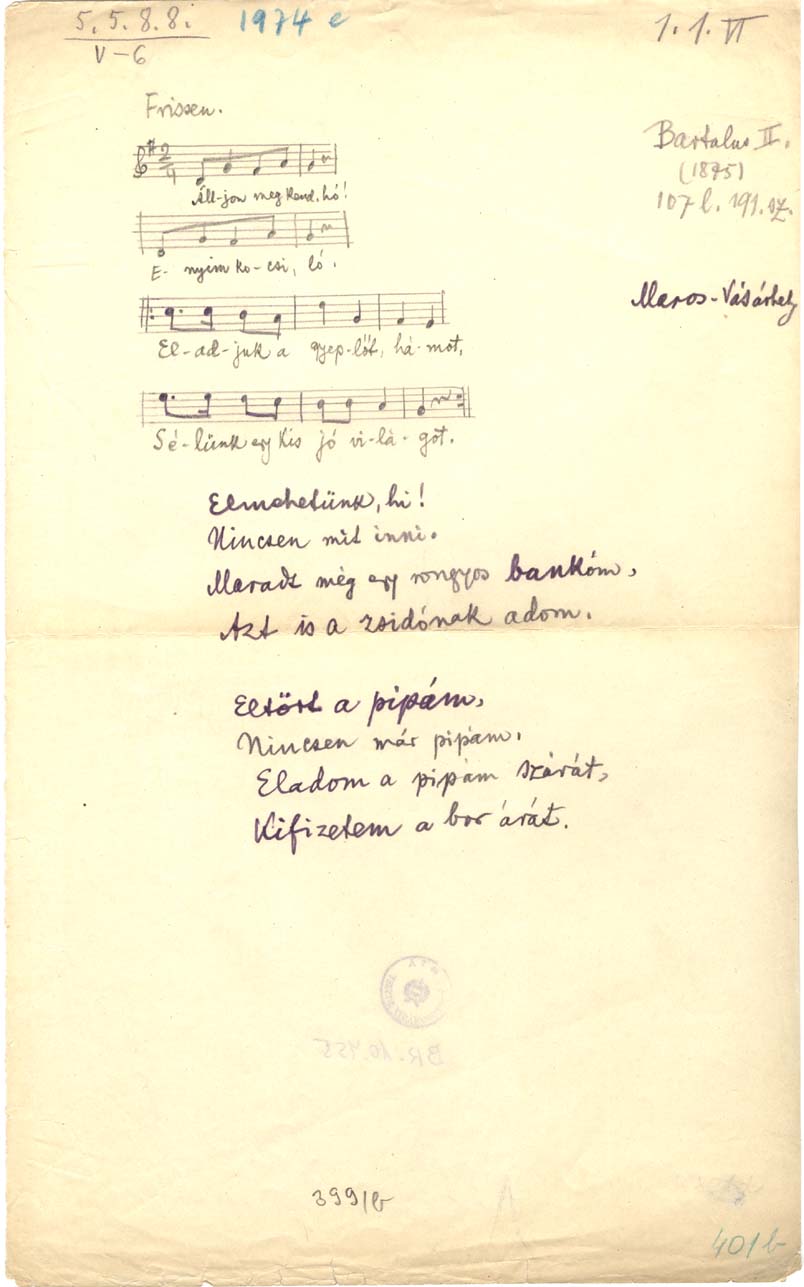 5. 5. 8. 8. 1974 e 1. 1. VI
V-6
Frissen.
Bartalus II.
(1875)
107 l. 191. sz.
2
4
Áll-jon meg Kend, hó!
E- nyim ko-csi, ló.
Maros-Vásárhely
El-ad-juk a gyep-lőt, há-mot,
Sé-lünk egy kis jó vi-lá-got.
Elmehetünk, hi!
Nincsen mit inni.
Maradt még egy rongyos bankóm,
Azt is a zsidónak adom.
Eltört a pipám,
Nincsen már pipám.
Eladom a pipám szárát,
Kifizetem a bor árát.
BR. 10.455
399/b
401 b